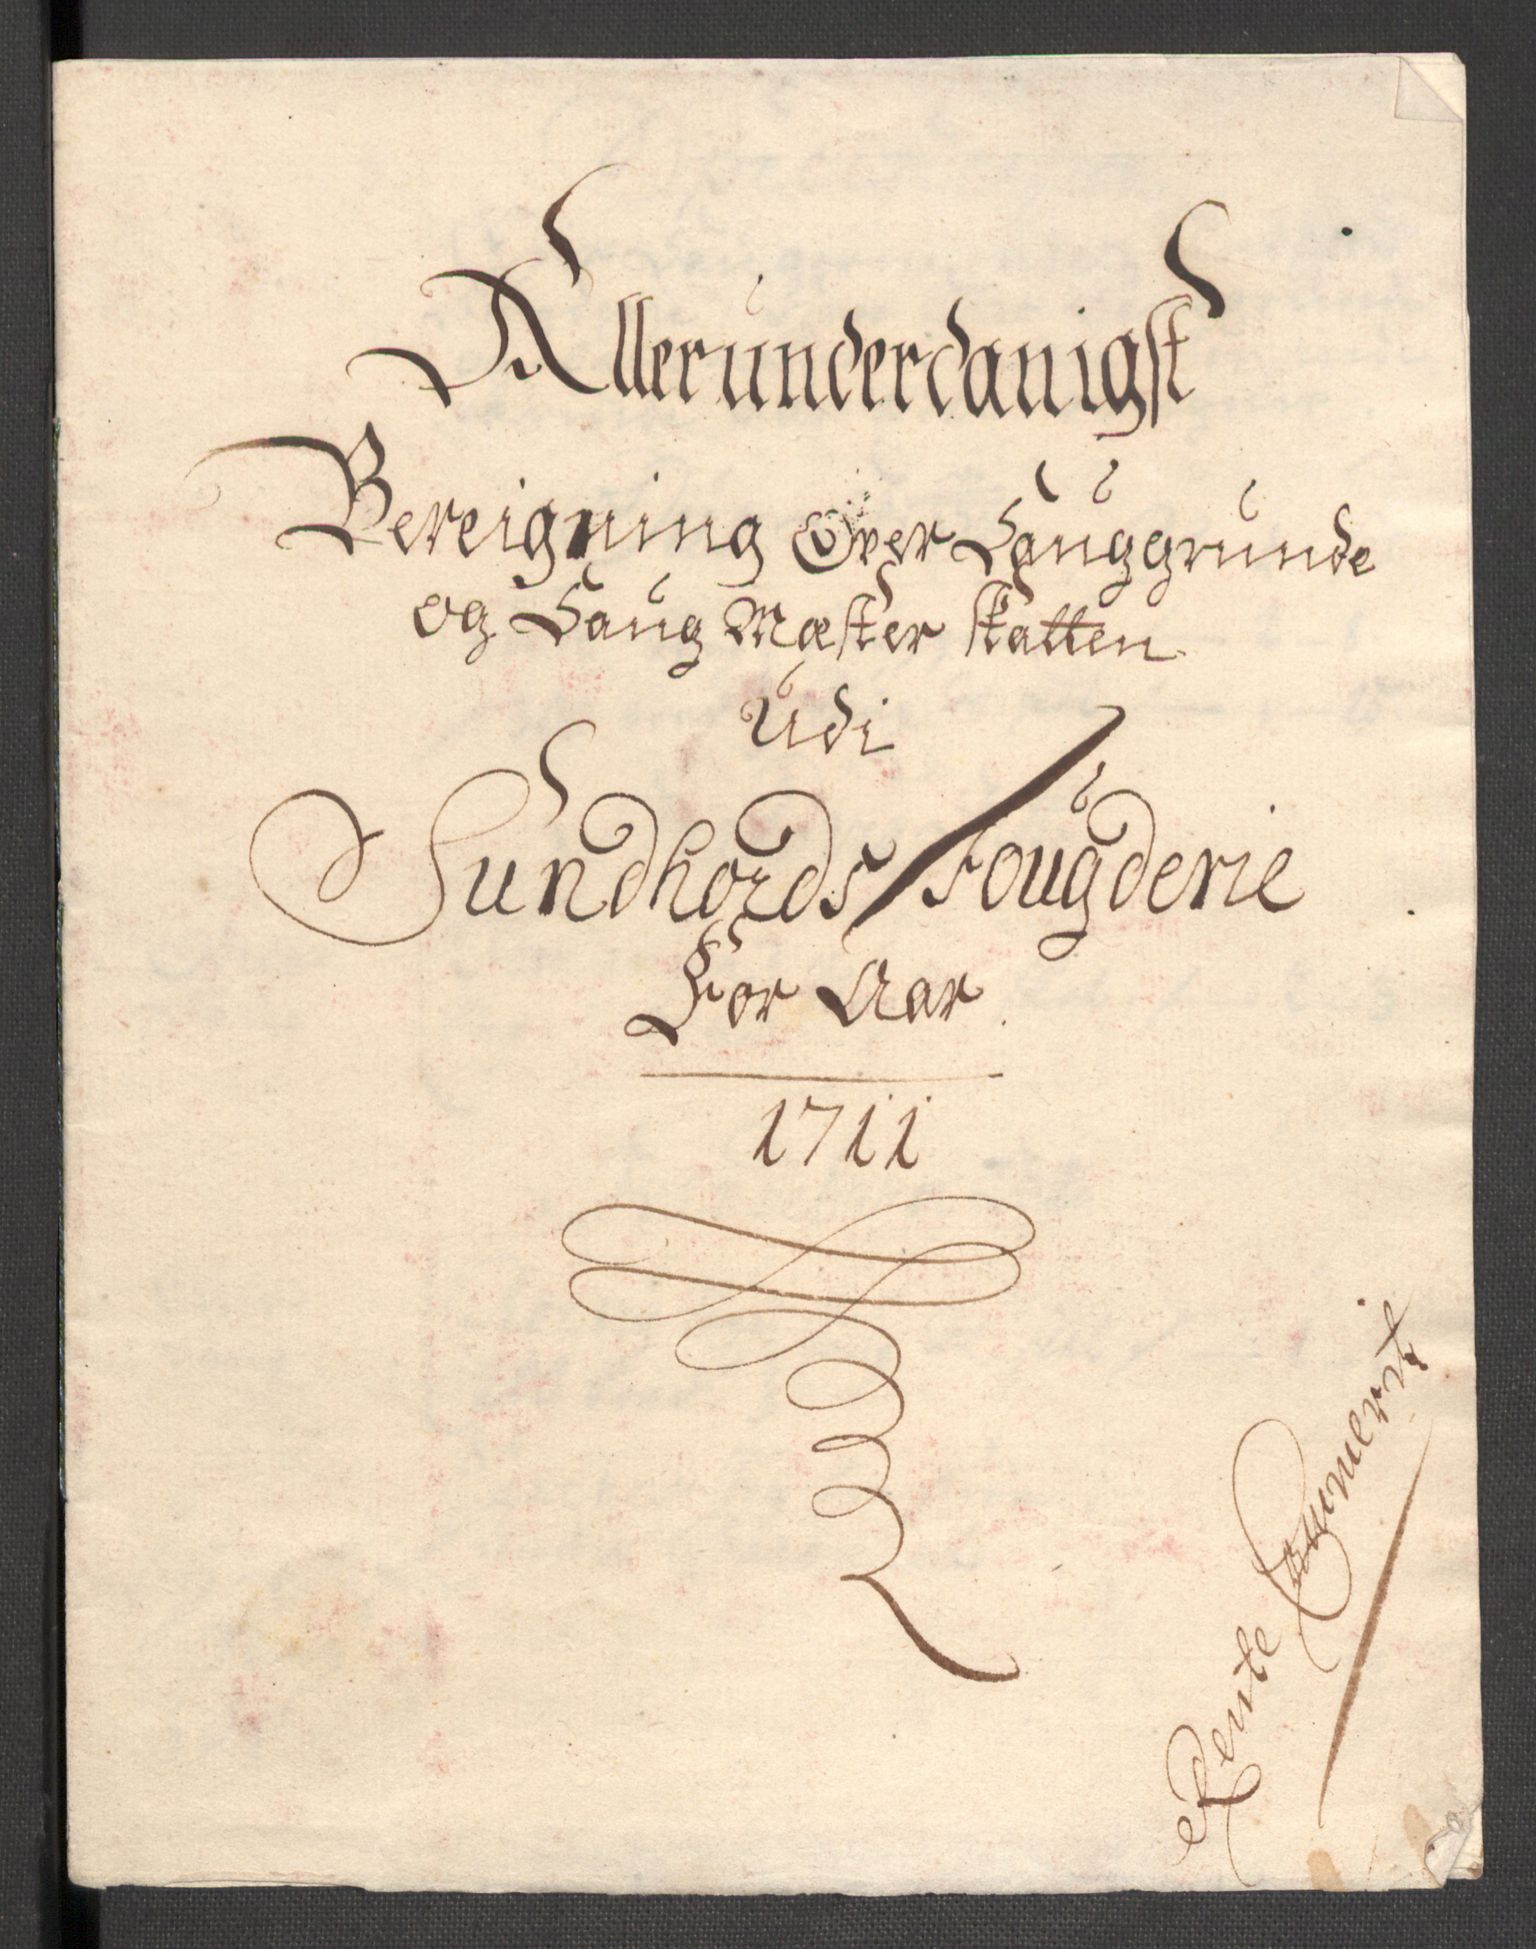 Allerunderdanigst
Bereigning Over Sauggrunde
og Saug Mæster skatten
Udi
Sundhords Fougderie
For Aar
1711
Rente Cammerit